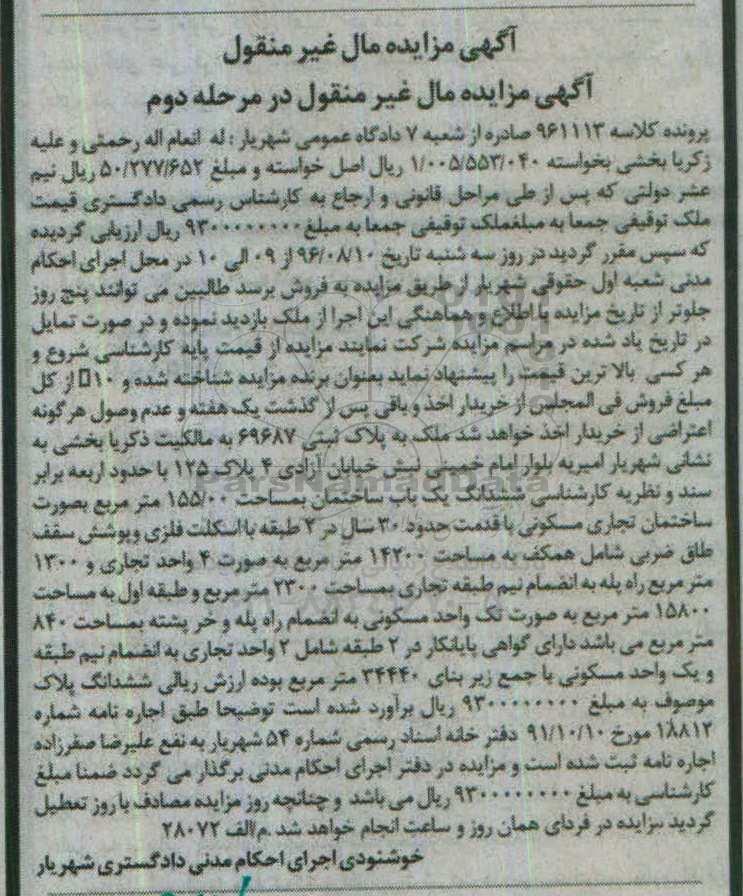 آگهی مزایده مال غیر منقول
آگهی مزایده مال غیر منقول در مرحله دوم
پرونده کلاسه ۹۶۱۱۱۳ صادره از شعبه ۷ دادگاه عمومی شهریار : له انعام اله رحمتی و علیه
زکریا بخشی بخواسته ۱/۰۰۵/۵۵۳/۰۴۰ ریال اصل خواسته و مبلغ ۵۰/۲۷۷/۶۵۲ ریال نیم
عشر دولتی که پس از طی مراحل قانونی و ارجاع به کارشناس رسمی دادگستری قیمت
ملک توقیفی جمعا به مبلغملک توقیفی جمعا به مبلغ ۹۳۰۰۰۰۰۰۰۰ ریال ارزیابی گردیده
که سپس مقرر گردید در روز سه شنبه تاریخ ۹۶/۰۸/۱۰ از ۰۹ الی ۱۰ در محل اجرای احکام
مدنی شعبه اول حقوقی شهریار از طریق مزایده به فروش برسد طالبین می توانند پنج روز
جلوتر از تاریخ مزایده با اطلاع و هماهنگی این اجرا از ملک بازدید نموده و در صورت تمایل
در تاریخ یاد شده در مراسم مزایده شرکت نمایند مزایده از قیمت پایه کارشناسی شروع و
هر کسی بالا ترین قیمت را پیشنهاد نماید بعنوان برنده مزایده شناخته شده و ۱۰□ از کل
مبلغ فروش فی المجلس از خریدار اخذ و باقی پس از گذشت یک هفته و عدم وصول هرگونه
اعتراضی از خریدار اخذ خواهد شد ملک به پلاک ثبتی ۶۹۶۸۷ به مالکیت ذکریا بخشی به
نشانی شهریار امیریه بلوار امام خمینی نبش خیابان آزادی ۴ پلاک ۱۲۵ با حدود اربعه برابر
سند و نظریه کارشناسی ششدانگ یک باب ساختمان بمساحت ۱۵۵/۰۰ متر مربع بصورت
ساختمان تجاری مسکونی با قدمت حدود ۳۰ سال در ۲ طبقه با اسکلت فلزی و پوشش سقف
طاق ضربی شامل همکف به مساحت ۱۴۲۰۰ متر مربع به صورت ۴ واحد تجاری و ۱۳۰۰
متر مربع راه پله به انضمام نیم طبقه تجاری بمساحت ۲۳۰۰ متر مربع و طبقه اول به مساحت
۱۵۸۰۰ متر مربع به صورت تک واحد مسکونی به انضمام راه پله و خر پشته بمساحت ۸۴۰
متر مربع می باشد دارای گواهی پایانکار در ۲ طبقه شامل ۲ واحد تجاری به انضمام نیم طبقه
و یک واحد مسکونی با جمع زیر بنای ۳۴۴۴۰ متر مربع بوده ارزش ریالی ششدانگ پلاک
موصوف به مبلغ ۹۳۰۰۰۰۰۰۰۰ ریال برآورد شده است توضیحا طبق اجاره نامه شماره
۱۸۸۱۲ مورخ ۹۱/۱۰/۱۰ دفتر خانه اسناد رسمی شماره ۵۴ شهریار به نفع علیرضا صفرزاده
اجاره نامه ثبت شده است و مزایده در دفتر اجرای احکام مدنی برگذار می گردد ضمنا مبلغ
کارشناسی به مبلغ ۹۳۰۰۰۰۰۰۰۰ ریال می باشد و چنانچه روز مزایده مصادف با روز تعطیل
گردید مزایده در فردای همان روز و ساعت انجام خواهد شد .م/الف ۲۸۰۷۲
خوشنودی اجرای احکام مدنی دادگستری شهریار
ParsNamadData